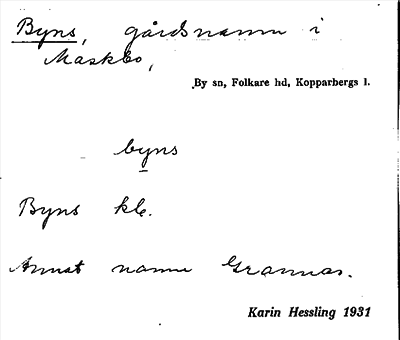 Byns, gårdsnamn i
Maskbo,
By sn, Folkare hd, Kopparbergs l.
byns
Byns kle.
Annat namn Grannas.
Karin Hessling 1931